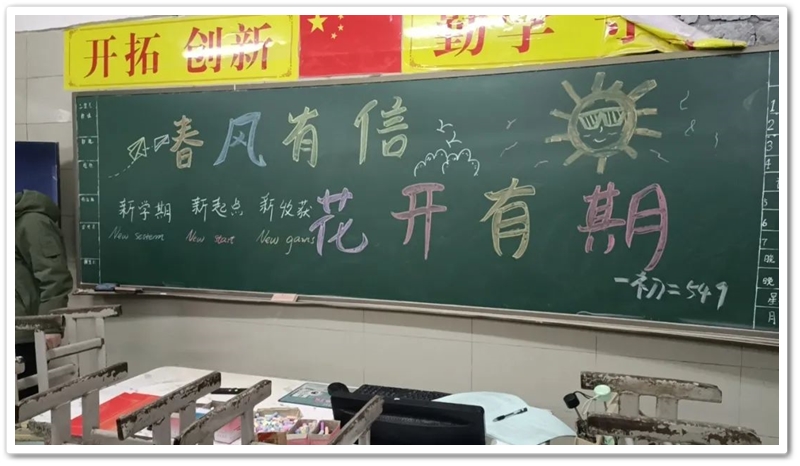 开拓 创新
勤学
春风有信
新学期 新起点 新收获
New start New gains
花开有期
一初二549
1
2
3
4
5
6
7
晚
晚
星
月